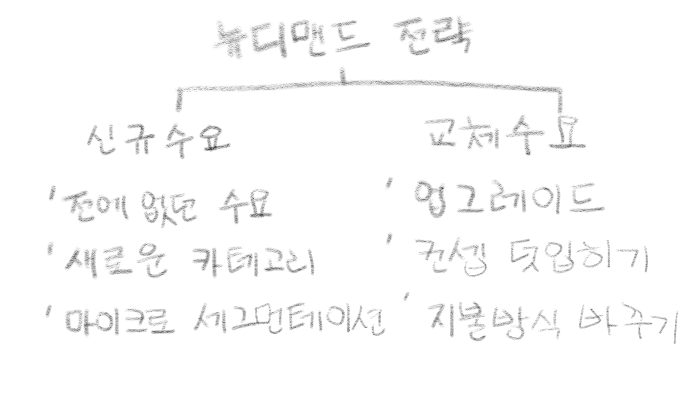 뉴디맨드 전략
신규수요
' 전에 없던 수요
' 새로운 카테고리
' 마이크로 세그먼테이션
교체수요
' 업그레이드
' 컨셉 덧입히기
' 지불방식 바꾸기